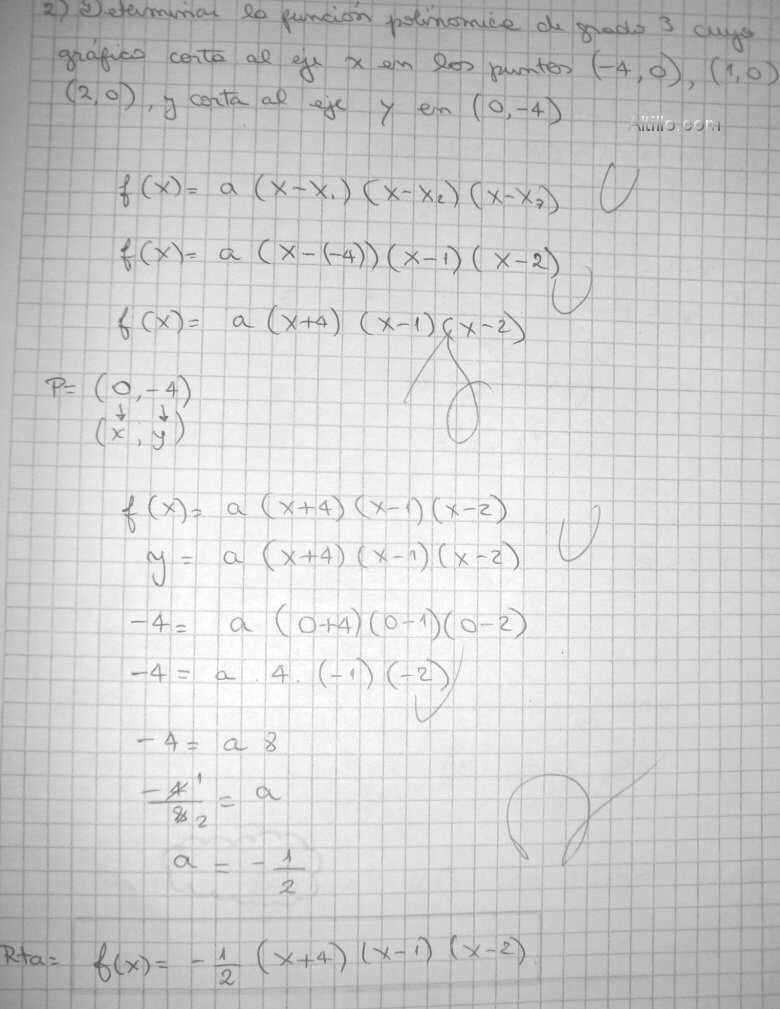 2) Determinar la función polinomica de grado 3 cuyo
gráfico corta al eje x en los puntos (-4, 0), (1, 0)
(2, 0), y corta al eje y en (0, -4)
Altillo.com
f(x)= a (x-x₁) (x-x₂) (x-x₃)
f(x)= a (x-(-4)) (x-1) (x-2)
f(x)= a (x+4) (x-1) (x-2)
P= (0, -4)
↓ ↓
(x, y)
f(x)= a (x+4) (x-1) (x-2)
y = a (x+4) (x-1) (x-2)
-4 = a (0+4) (0-1) (0-2)
-4 = a . 4 . (-1) (-2)
-4 = a 8
-4 1 / 8 2 = a
a = - 1/2
Rta= f(x)= - 1/2 (x+4) (x-1) (x-2)